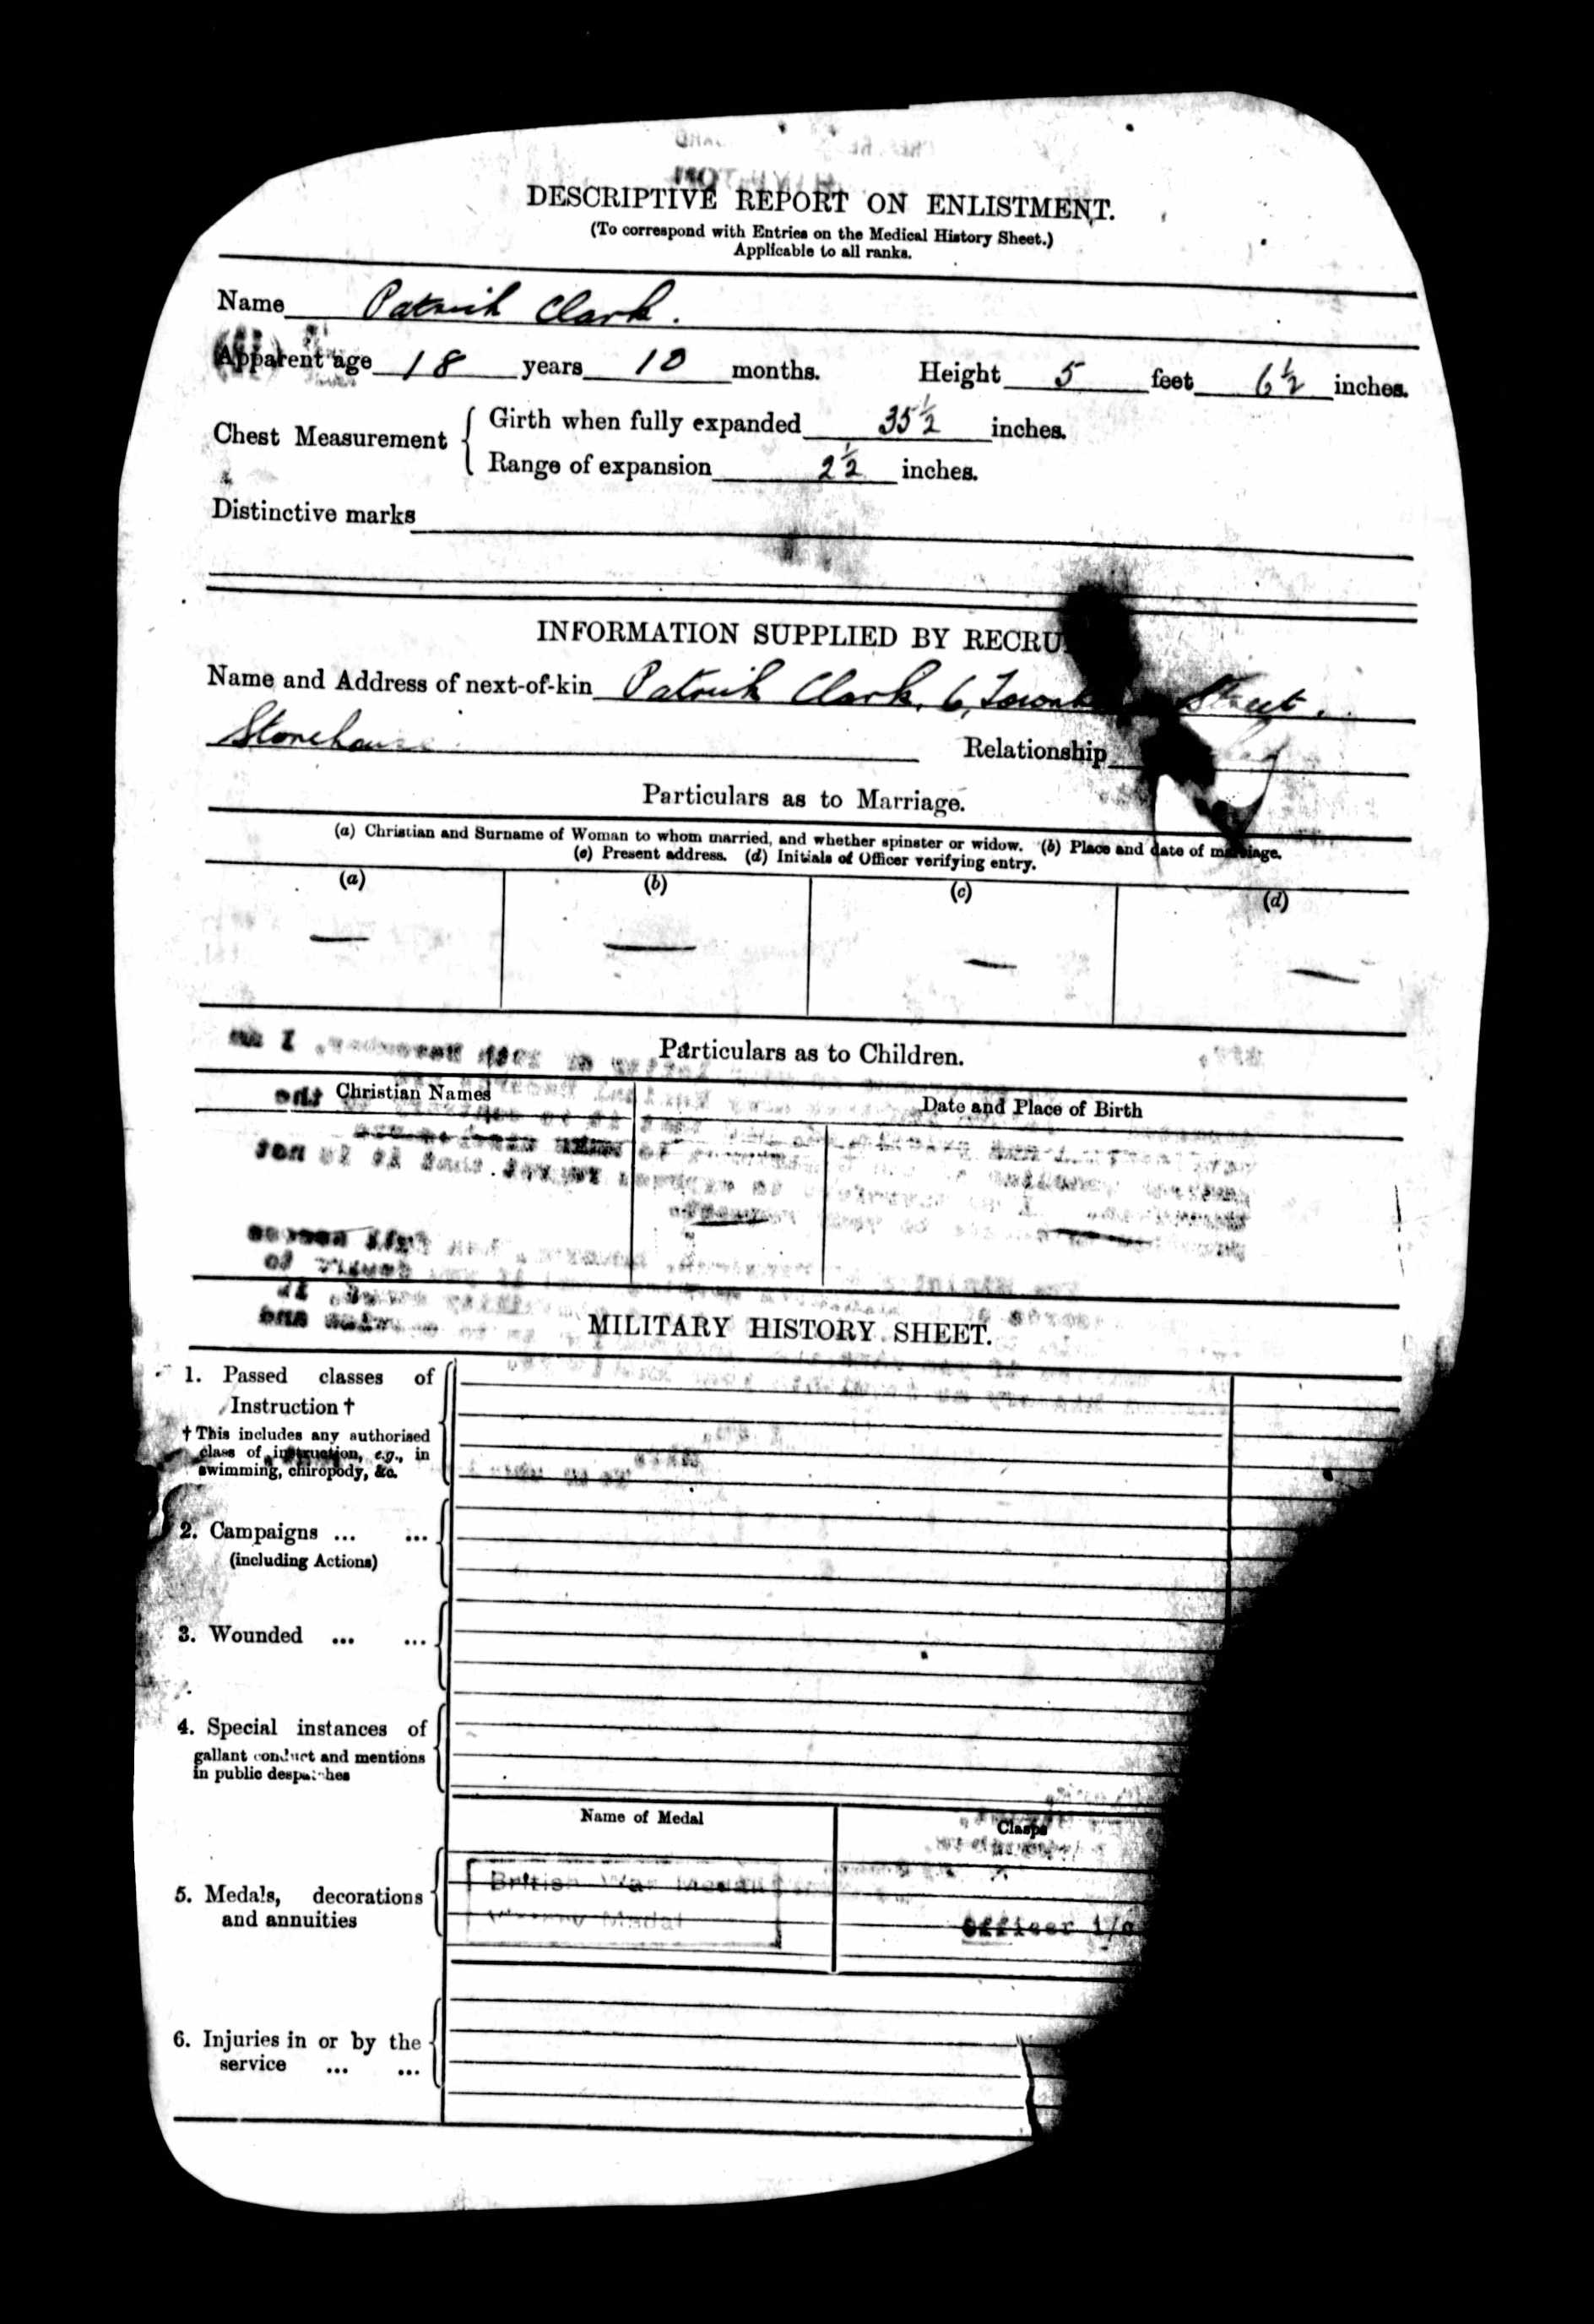 DESCRIPTIVE REPORT ON ENLISTMENT.
(To correspond with Entries on the Medical History Sheet.)
Applicable to all ranks.
Name Patrick Clark.
Apparent age 18 years 10 months. Height 5 feet 6½ inches.
Chest Measurement { Girth when fully expanded 35½ inches.
Range of expansion 2½ inches.
Distinctive marks
INFORMATION SUPPLIED BY RECRU
Name and Address of next-of-kin Patrick Clark, 6, Street.
Stonehouse Relationship
Particulars as to Marriage.
(a) Christian and Surname of Woman to whom married, and whether spinster or widow. (b) Place and date of marriage.
(c) Present address. (d) Initials of Officer verifying entry.
(a) (b) (c) (d)
— — — —
Particulars as to Children.
Christian Names Date and Place of Birth
— —
MILITARY HISTORY SHEET.
1. Passed classes of
Instruction †
† This includes any authorised
class of instruction, e.g., in
swimming, chiropody, &c.
2. Campaigns ... ...
(including Actions)
3. Wounded ... ...
4. Special instances of
gallant conduct and mentions
in public despatches
Name of Medal Clasps
5. Medals, decorations
and annuities
British War Medal
Victory Medal
Officer i/c
6. Injuries in or by the
service ... ...